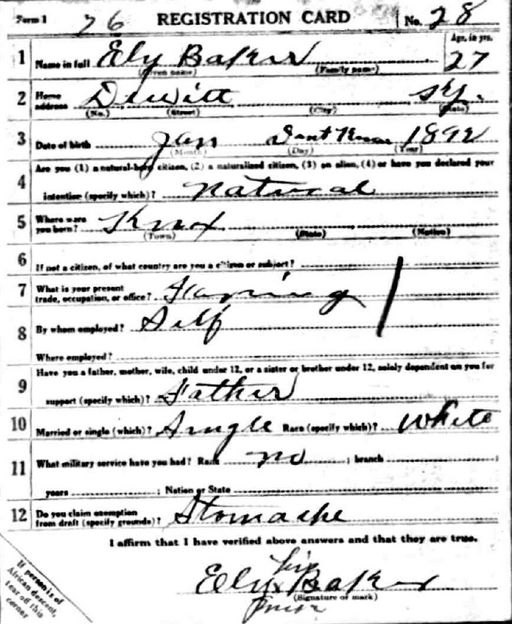 Form 1 26 REGISTRATION CARD No. 28
1 Name in full Ely Baker Age, in yrs. 27
(Given name) (Family name)
2 Home address Dewitt Ky.
(No.) (Street) (City) (State)
3 Date of birth Jan Dont Know 1892
(Month) (Day) (Year)
Are you (1) a natural-born citizen, (2) a naturalized citizen, (3) an alien, (4) or have you declared your
4 intention (specify which)? Natural
5 Where were you born? Knox
(Town) (State) (Nation)
6 If not a citizen, of what country are you a citizen or subject?
7 What is your present trade, occupation, or office? Farming
8 By whom employed? Self
Where employed?
9 Have you a father, mother, wife, child under 12, or a sister or brother under 12, solely dependent on you for
support (specify which)? Father
10 Married or single (which)? Single Race (specify which)? White
11 What military service have you had? Rank no ; branch ;
years ; Nation or State
12 Do you claim exemption from draft (specify grounds)? Stomache
I affirm that I have verified above answers and that they are true.
his
Ely x Baker
(Signature or mark)
If person is of
African descent,
tear off this
corner